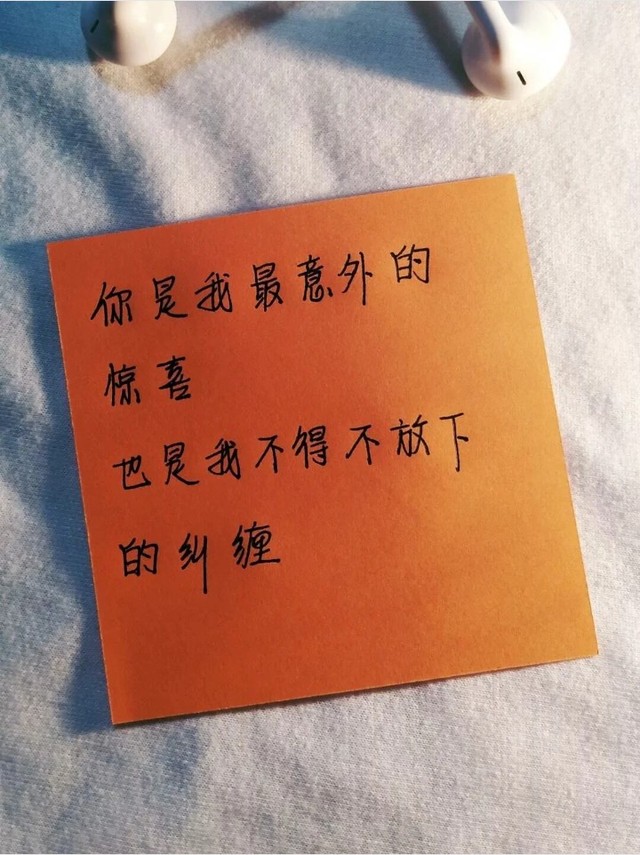 你是我最意外的
惊喜
也是我不得不放下
的纠缠